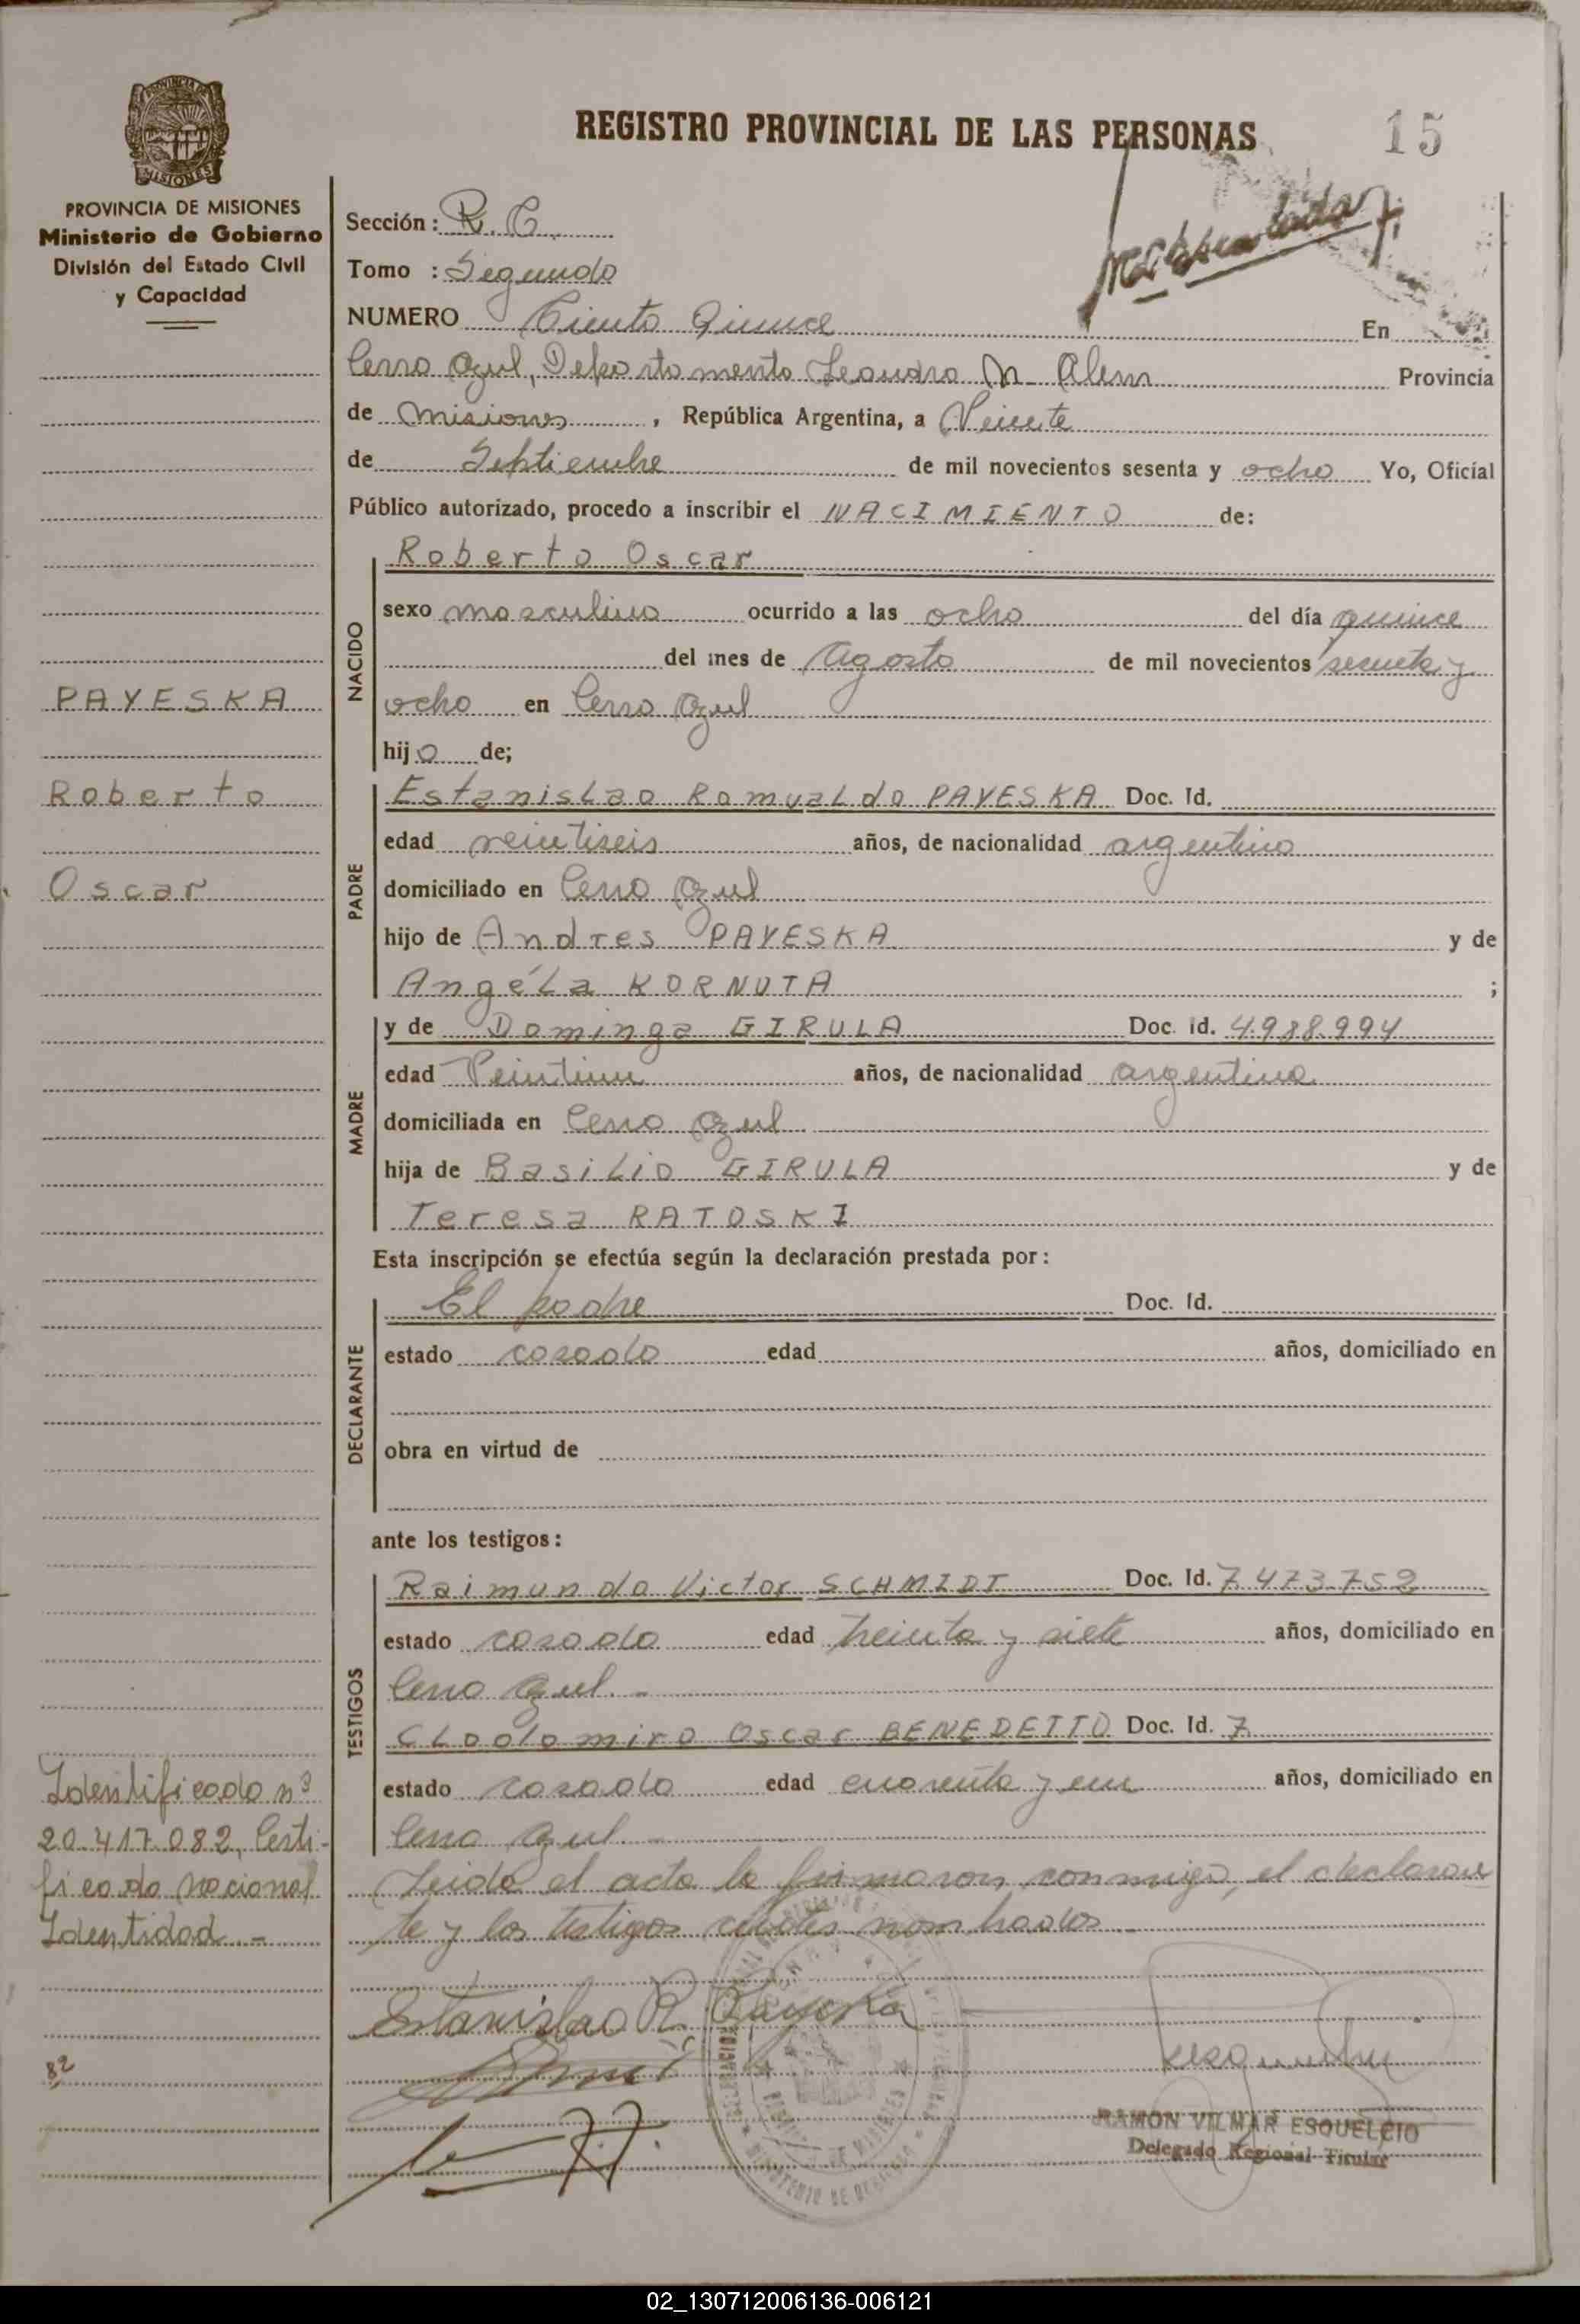 REGISTRO PROVINCIAL DE LAS PERSONAS
15
PROVINCIA DE MISIONES
Ministerio de Gobierno
División del Estado Civil
y Capacidad
Sección: R. C.
Tomo : Segundo
NUMERO Ciento Quince En
Cerro Azul, Departamento Leandro N. Alem Provincia
de Misiones, República Argentina, a Veinte
de Septiembre de mil novecientos sesenta y ocho Yo, Oficial
Público autorizado, procedo a inscribir el NACIMIENTO de:
NACIDO
Roberto Oscar
sexo masculino ocurrido a las ocho del día quince
del mes de Agosto de mil novecientos sesenta y
ocho en Cerro Azul
hijo de;
PAYESKA
Roberto
Oscar
PADRE
Estanislao Romualdo PAYESKA Doc. Id.
edad veintiseis años, de nacionalidad argentino
domiciliado en Cerro Azul
hijo de Andres PAYESKA y de
Angéla KORNUTA ;
MADRE
y de Dominga GIRULA Doc. Id. 4.988.994
edad Veintiun años, de nacionalidad argentina
domiciliada en Cerro Azul
hija de Basilio GIRULA y de
Teresa RATOSKI
Esta inscripción se efectúa según la declaración prestada por:
DECLARANTE
El padre Doc. Id.
estado casado edad años, domiciliado en
obra en virtud de
ante los testigos:
TESTIGOS
Raimundo Victor SCHMIDT Doc. Id. 7.473.752
estado casado edad treinta y siete años, domiciliado en
Cerro Azul. -
Clodomiro Oscar BENEDETTO Doc. Id. 7
estado casado edad cuarenta y un años, domiciliado en
Cerro Azul. -
Leida el acta la firmaron conmigo, el declaran
te y los testigos nombrados -
Identificado nº
20.417.082, Certi-
ficado nacional
Identidad. -
82
Estanislao R. Payeska
RAMON VILMAR ESQUELCIO
Delegado Regional Titular
02_130712006136-006121